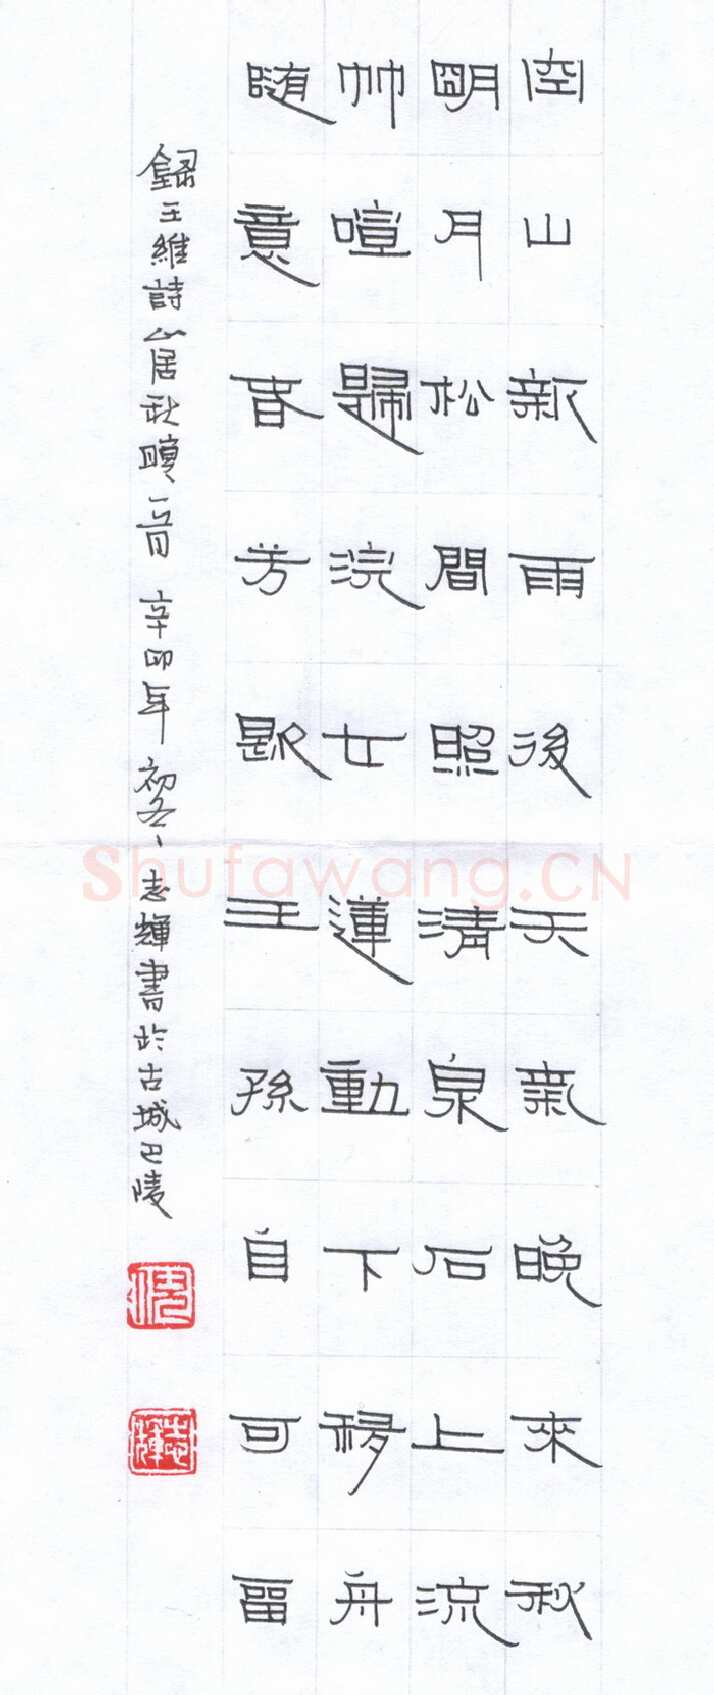 空山新雨後天氣晚來秋
明月松間照清泉石上流
竹喧歸浣女蓮動下移舟
随意春芳歇王孫自可留
錄王維詩山居秋暝一首 辛卯年初冬、志輝書於古城巴陵
志輝
Shufawang.CN